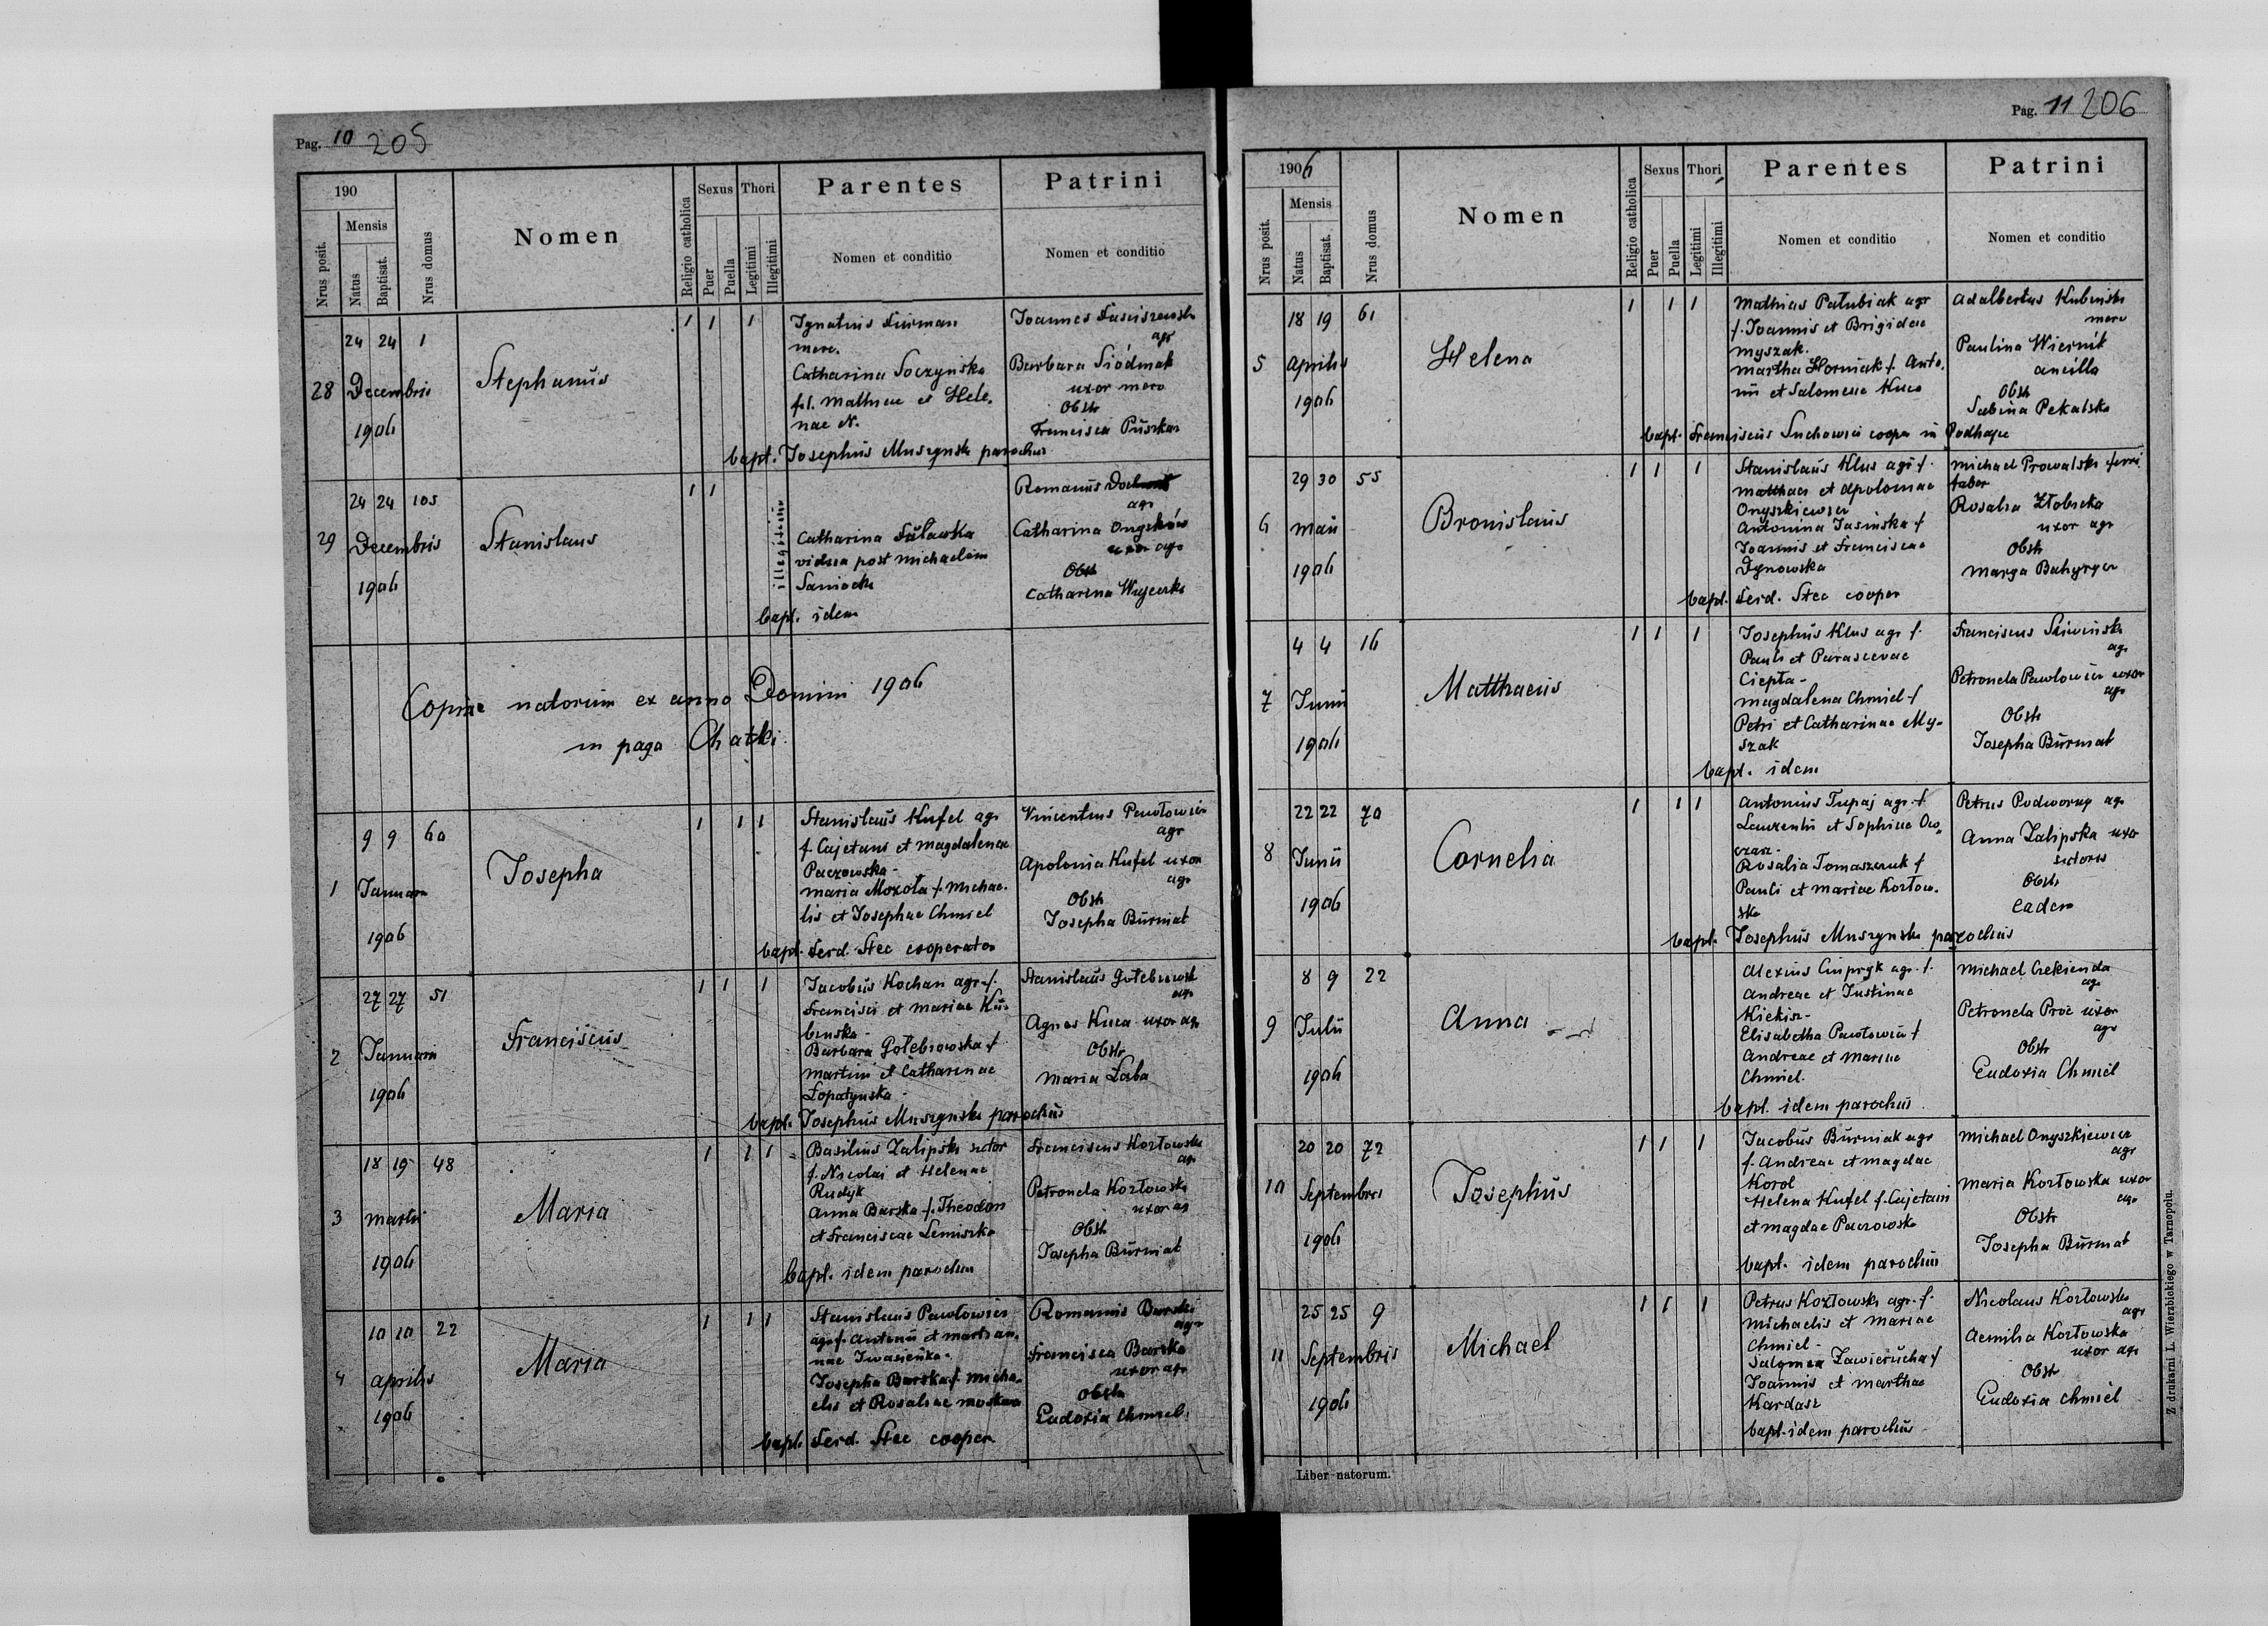 Pag. 10 205
190
Nrus posit.
Mensis
Natus
Baptisat.
Nrus domus
Nomen
Religio catholica
Sexus
Puer
Puella
Thori
Legitimi
Illegitimi
Parentes
Nomen et conditio
Patrini
Nomen et conditio
28
24 24 1
Decembris
1906
Stephanus
1 1 1
Ignatius Furman
merc.
Catharina Soczyńska
f. Mathiae et Hele.
nae N.
bapt. Josephus Muszynski parochus
Joannes
agr
Barbara Siódmak
uxor merc
Obstr
Francisca Puszkar
29
24 24 105
Decembris
1906
Stanislaus
1 1
illegitimi
Catharina
vidua post Michaelem
Saniocki
bapt. idem
Romanus
agr
Catharina Onyszków
uxor agr
Obstr
Catharina
Copiae natorum ex anno Domini 1906
in pago Chatki
1
9 9 60
Januarii
1906
Josepha
1 1 1
Stanislaus Kufel agr
f. Cajetani et Magdalenae
Paczowska-
Maria Mozola f. Michae-
lis et Josephae Chmiel
bapt. Ferd. Stec cooperator
Vincentius Pawłowicz
agr
Apolonia Kufel uxor
agr
Obstr
Josepha Burniat
2
27 27 51
Januarii
1906
Franciscus
1 1 1
Jacobus Kochan agr f.
Francisci et Mariae Ku-
binska-
Barbara Gołebiowska f
Martini et Catharinae
Łopatynska-
bapt. Josephus Muszynski parochus
Stanislaus Gołebiowski
agr
Agnes Kuca uxor agr
Obstr
Maria Łaba
3
18 19 48
Martii
1906
Maria
1 1 1
Basilius Zalipski sutor
f. Nicolai et Helenae
Rudyk
Anna Barska f. Theodori
et Franciscae Lemiszka
bapt. idem parochus
Franciscus Kozłowski
agr
Petronela Kozłowska
uxor ag
Obstr
Josepha Burniat
4
10 10 22
Aprilis
1906
Maria
1 1 1
Stanislaus Pawłowicz
agr f. Antonii et Marian-
nae Iwasieńka-
Josepha Barska f. Micha-
elis et Rosaliae
bapt. Ferd. Stec cooper
Romanus Barski
agr
Francisca Barska
uxor agr
Obstr
Eudoxia Chmiel
Pag. 11 206
1906
Nrus posit.
Mensis
Natus
Baptisat.
Nrus domus
Nomen
Religio catholica
Sexus
Puer
Puella
Thori
Legitimi
Illegitimi
Parentes
Nomen et conditio
Patrini
Nomen et conditio
5
18 19 61
Aprilis
1906
Helena
1 1 1
Mathias Patubiak agr
f. Joannis et Brigidae
Myszak.
Martha Horniak f. Anto.
nii et Salomeae Kuca
bapt. Franciscus Suchowicz cooper in Podhajce
Adalbertus Kubinski
merc
Paulina Wiernik
ancilla
Obstr
Sabina Pekalska
6
29 30 55
Maii
1906
Bronislaus
1 1 1
Stanislaus Klus agr f.
Matthaei et Apoloniae
Onyszkiewicz
Antonina Jasinska f
Joannis et Franciscae
Dynowska
bapt. Ferd. Stec cooper
Michael Prowalski ferri
faber
Rosalia Złobicka
uxor agr
Obstr
Marya Bahyrycz
7
4 4 16
Junii
1906
Matthaeus
1 1 1
Josephus Klus agr f.
Pauli et Parascevae
Ciepła-
Magdalena Chmiel f
Petri et Catharinae My-
szak
bapt. idem
Franciscus Śliwiński
agr
Petronela Pawłowicz uxor
agr
Obstr
Josepha Burniat
8
22 22 70
Junii
1906
Cornelia
1 1 1
Antonius Tupaj agr f
Laurentii et Sophiae Ow„
czar-
Rosalia Tomaszczuk f
Pauli et Mariae Kozłow.
ska
bapt. Josephus Muszynski parochus
Petrus Podworny agr
Anna Zalipska uxor
sutoris
Obstr
eadem
9
8 9 22
Julii
1906
Anna
Alexius Cupryk agr. f.
Andreae et Justinae
Kiekisz-
Elisabetha Pawłowicz f
Andreae et Mariae
Chmiel.
bapt. idem parochus
Michael Czekienda
agr
Petronela Proć uxor
agr
Obstr
Eudoxia Chmiel
10
20 20 72
Septembris
1906
Josephus
1 1 1
Jacobus Burniak agr
f. Andreae et Magdae
Korol
Helena Kufel f. Cajetani
et Magdae Paczowska
bapt. idem parochus
Michael Onyszkiewicz
agr
Maria Kozłowska uxor
agr
Obstr
Josepha Burniat
11
25 25 9
Septembris
1906
Michael
1 1 1
Petrus Kozłowski agr. f.
Michaelis et Mariae
Chmiel-
Salomea Zawierucha f
Joannis et Marthae
Kardasz
bapt. idem parochus
Nicolaus Kozłowski
agr
Aemilia Kozłowska
uxor agr
Obstr
Eudoxia Chmiel
Liber natorum.
Z drukarni L. Wierzbickiego w Tarnopolu.